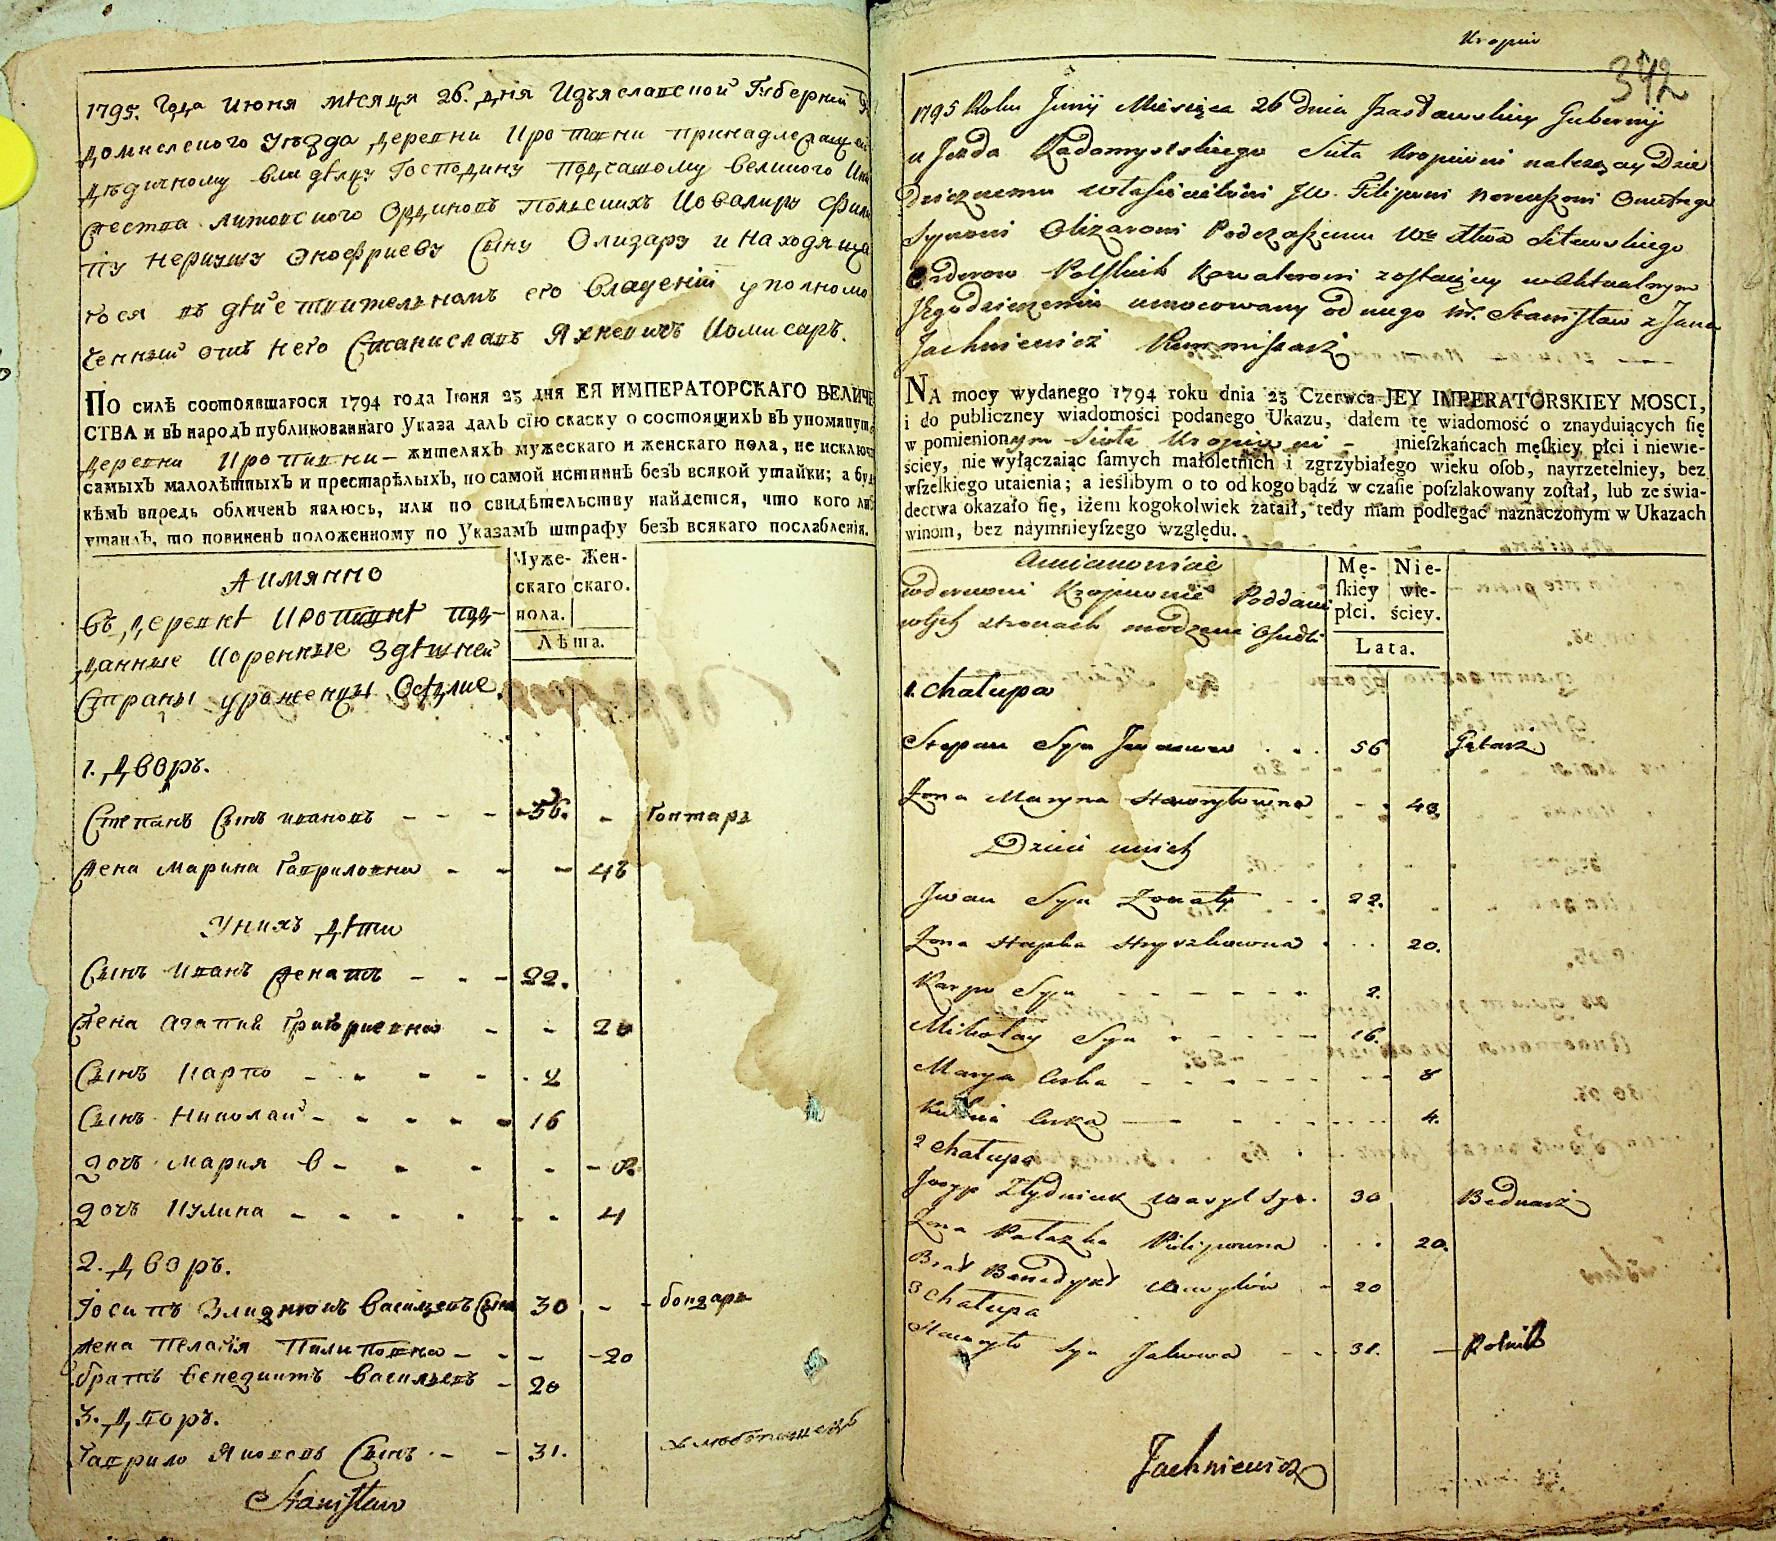 1795. Года Июня мѣсяца 26. дня Изъяславской Губерніи
домисленого уѣзда деревни Кропивни принадлежащей
дѣдичному владѣлцу Господину Подчашому великого Кня
жества литовского Ординовъ Полскихъ Ковалиру Фили
пу Нериушу Онофриеву Сыну Олизару и находяща
гося въ дѣйствителномъ его владеніи уполномо
ченный отъ него Станиславъ Яхневичъ Комисаръ.
ПО силѣ состоявшагося 1794 года Іюня 23 дня ЕЯ ИМПЕРАТОРСКАГО ВЕЛИЧЕ
СТВА и въ народъ публикованнаго Указа далъ сію скаску о состоящихъ въ упомянут
деревни Кропивни — жителяхъ мужескаго и женскаго пола, не исключ
самыхъ малолѣтныхъ и престарѣлыхъ, по самой истиннѣ безъ всякой утайки; а бу
кѣмъ впредь обличенъ явлюсь, или по свидѣтельству найдется, что кого ли
утаилъ, то повиненъ положенному по Указамъ штрафу безъ всякаго послабленія.
Муже- Жен-
скаго скаго.
пола.
Лѣта.
А имянно
Въ деревнѣ Кропивнѣ под-
данные Коренные Здѣшней
Страны уроженцы Оседлие.
1. Дворъ.
Степанъ Сынъ ивановъ - - - 56. - Гонтаръ
жена Марина Гавриловна - - - 48
У нихъ Дѣти
Сынъ Иванъ женатъ - - - 22.
жена Агапия Григориевна - - 20
Сынъ Карпо - - - - 2
Сынъ Николай - - - - - 16
дочъ Мария - - - - - 8
дочъ Кулина - - - - - - 4
2. Дворъ.
Іосипъ Злиднюкъ Васильевъ Сынъ 30 - - бондаръ
жена Пелагія Пилиповна - - - - 20
братъ Бенедиктъ Васильевъ - 20
3. Дворъ.
Гаврило Яковевъ Сынъ - - 31. хлебопашецъ
Stanisław
Kropiw
342
1795 Roku Junij Miesiąca 26 dnia Jzasławskiey Gubernij
y Jezda Radomyslskiego Sieła Kropiwni należącey Dzie
dzicznemu właścicielowi JW. Filipowi Nereuszowi Onufrego
Synowi Olizarowi Podczaszemu Wo Xtwa Litewskiego
Orderow Polskich Kawalerowi zostaiącey w aktualnym
Jego dzierżeniu umocowany od niego W. Stanisław z Jana
Jachniewicz Kommissarz
NA mocy wydanego 1794 roku dnia 23 Czerwca JEY IMPERATORSKIEY MOSCI,
i do publiczney wiadomości podanego Ukazu, dałem tę wiadomość o znayduiących ſię
w pomienionym Siele Kropiwni — mieſzkańcach męſkiey płci i niewie-
ściey, nie wyłączaiąc ſamych małoletnich i zgrzybiałego wieku oſob, nayrzetelniey, bez
wſzelkiego utaienia; a ieślibym o to od kogo bądź w czaſie poſzlakowany zoſtał, lub ze świa-
dectwa okazało ſię, iżem kogokolwiek zataił, tedy mam podlegać naznaczonym w Ukazach
winom, bez naymnieyſzego względu.
Mę- Nie-
ſkiey wie-
płci. ściey.
Lata.
Amianowicie
w derewni Kropiwnie Poddani
wtych stronach
1. Chałupa
Stepan Syn Jwanow . . . 56 Gątarz
Żona Maryna Hawryłowna - - 48
Dzieci onich
Jwan Syn Żonaty - - 22.
Żona Hapka Hryszkowna . . . 20.
Karpo Syn - - - - - - 2.
Mikołay Syn - - - - - 16.
Marya Curka - - - - - - - - 8
Kulina Curka - - - - - - - - 4.
2 Chałupa
Josyp Złydniuk Wasyl Syn. 30 Bednarz
Żona Pałazka Pilipowna . . . 20.
Brat Benedykt Wasylów - 20
3 Chałupa
Hawryło Syn Jakowa - - 31. - Rolnik
Jachniewicz